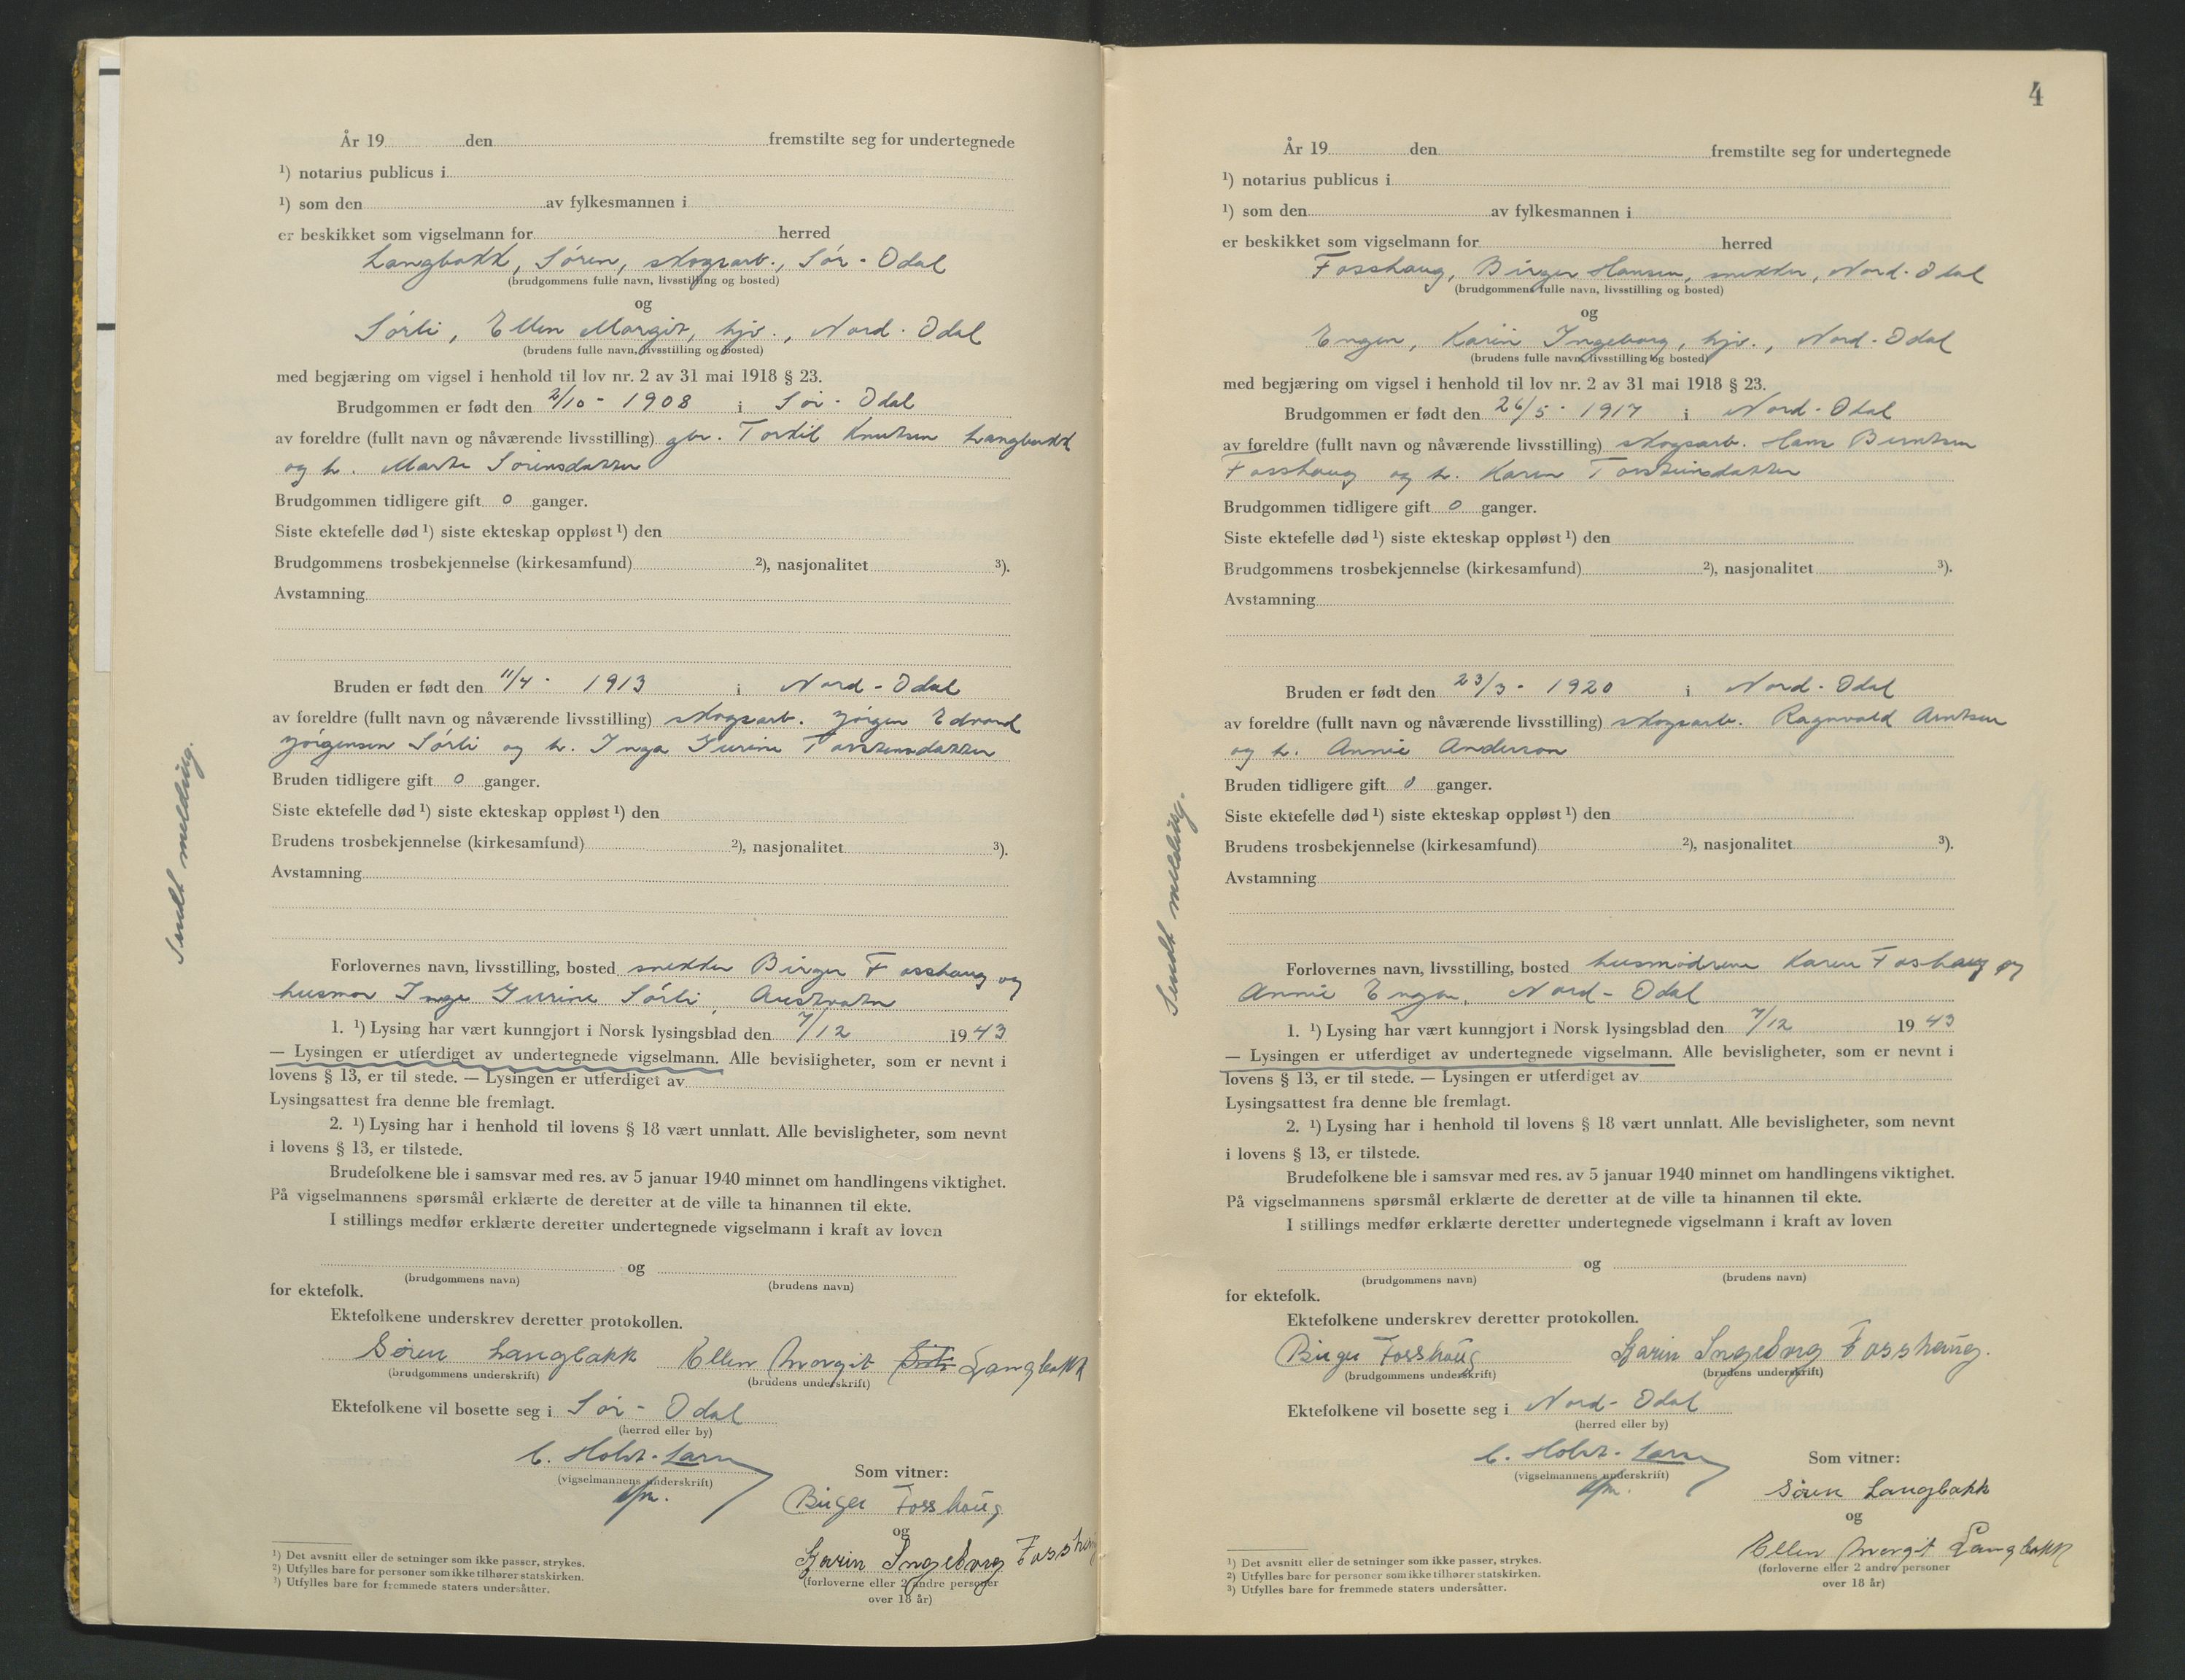 År 19 den fremstilte seg for undertegnede
¹) notarius publicus i
¹) som den av fylkesmannen i
er beskikket som vigselmann for herred
Langbakk, Sören, skogsarb., Sör-Odal
(brudgommens fulle navn, livsstilling og bosted)
og
Sörli, Ellen Margit, hjv., Nord-Odal
(brudens fulle navn, livsstilling og bosted)
med begjæring om vigsel i henhold til lov nr. 2 av 31 mai 1918 § 23.
Brudgommen er født den 2/10 - 1908 i Sör-Odal
av foreldre (fullt navn og nåværende livsstilling) gbr. Torkil Knutsen Langbakk
og h. Marte Sörensdatter
Brudgommen tidligere gift 0 ganger.
Siste ektefelle død ¹) siste ekteskap oppløst ¹) den
Brudgommens trosbekjennelse (kirkesamfund) ²), nasjonalitet ³).
Avstamning
Bruden er født den 11/4 - 1913 i Nord-Odal
av foreldre (fullt navn og nåværende livsstilling) skogsarb. Jörgen Edvard
Jörgensen Sörli og h. Inga Gurine Torstensdatter
Bruden tidligere gift 0 ganger.
Siste ektefelle død ¹) siste ekteskap oppløst ¹) den
Brudens trosbekjennelse (kirkesamfund) ²), nasjonalitet ³).
Avstamning
Sendt melding.
Forlovernes navn, livsstilling, bosted snekker Birger Fosshaug og
husmor Inga Gurine Sörli, Austvatn
1. ¹) Lysing har vært kunngjort i Norsk lysingsblad den 7/12 1943
— Lysingen er utferdiget av undertegnede vigselmann. Alle bevisligheter, som er nevnt i
lovens § 13, er til stede. — Lysingen er utferdiget av
Lysingsattest fra denne ble fremlagt.
2. ¹) Lysing har i henhold til lovens § 18 vært unnlatt. Alle bevisligheter, som nevnt
i lovens § 13, er tilstede.
Brudefolkene ble i samsvar med res. av 5 januar 1940 minnet om handlingens viktighet.
På vigselmannens spørsmål erklærte de deretter at de ville ta hinannen til ekte.
I stillings medfør erklærte deretter undertegnede vigselmann i kraft av loven
og
(brudgommens navn) (brudens navn)
for ektefolk.
Ektefolkene underskrev deretter protokollen.
Sören Langbakk Ellen Margit Langbakk
(brudgommens underskrift) (brudens underskrift)
Ektefolkene vil bosette seg i Sör-Odal
(herred eller by)
C. Holst-Larsen
(vigselmannens underskrift)
Som vitner:
Birger Fosshaug
og
Karin Ingeborg Fosshaug
(forloverne eller 2 andre personer
over 18 år)
¹) Det avsnitt eller de setninger som ikke passer, strykes.
²) Utfylles bare for personer som ikke tilhører statskirken.
³) Utfylles bare for fremmede staters undersåtter.
4
År 19 den fremstilte seg for undertegnede
¹) notarius publicus i
¹) som den av fylkesmannen i
er beskikket som vigselmann for herred
Fosshaug, Birger Hansen, snekker, Nord-Odal
(brudgommens fulle navn, livsstilling og bosted)
og
Engen, Karin Ingeborg, hjv., Nord-Odal
(brudens fulle navn, livsstilling og bosted)
med begjæring om vigsel i henhold til lov nr. 2 av 31 mai 1918 § 23.
Brudgommen er født den 26/5 - 1917 i Nord-Odal
av foreldre (fullt navn og nåværende livsstilling) skogsarb. Hans Berntsen
Fosshaug og h. Karen Torsteinsdatter
Brudgommen tidligere gift 0 ganger.
Siste ektefelle død ¹) siste ekteskap oppløst ¹) den
Brudgommens trosbekjennelse (kirkesamfund) ²), nasjonalitet ³).
Avstamning
Bruden er født den 23/3 - 1920 i Nord-Odal
av foreldre (fullt navn og nåværende livsstilling) skogsarb. Ragnvald Arntsen
og h. Annie Anderson
Bruden tidligere gift 0 ganger.
Siste ektefelle død ¹) siste ekteskap oppløst ¹) den
Brudens trosbekjennelse (kirkesamfund) ²), nasjonalitet ³).
Avstamning
Sendt melding.
Forlovernes navn, livsstilling, bosted husmödrene Karen Foshaug og
Annie Engen, Nord-Odal
1. ¹) Lysing har vært kunngjort i Norsk lysingsblad den 7/12 1943
— Lysingen er utferdiget av undertegnede vigselmann. Alle bevisligheter, som er nevnt i
lovens § 13, er til stede. — Lysingen er utferdiget av
Lysingsattest fra denne ble fremlagt.
2. ¹) Lysing har i henhold til lovens § 18 vært unnlatt. Alle bevisligheter, som nevnt
i lovens § 13, er tilstede.
Brudefolkene ble i samsvar med res. av 5 januar 1940 minnet om handlingens viktighet.
På vigselmannens spørsmål erklærte de deretter at de ville ta hinannen til ekte.
I stillings medfør erklærte deretter undertegnede vigselmann i kraft av loven
og
(brudgommens navn) (brudens navn)
for ektefolk.
Ektefolkene underskrev deretter protokollen.
Birger Fosshaug Karin Ingeborg Fosshaug.
(brudgommens underskrift) (brudens underskrift)
Ektefolkene vil bosette seg i Nord-Odal
(herred eller by)
C. Holst-Larsen
(vigselmannens underskrift)
Som vitner:
Sören Langbakk
og
Ellen Margit Langbakk
(forloverne eller 2 andre personer
over 18 år)
¹) Det avsnitt eller de setninger som ikke passer, strykes.
²) Utfylles bare for personer som ikke tilhører statskirken.
³) Utfylles bare for fremmede staters undersåtter.